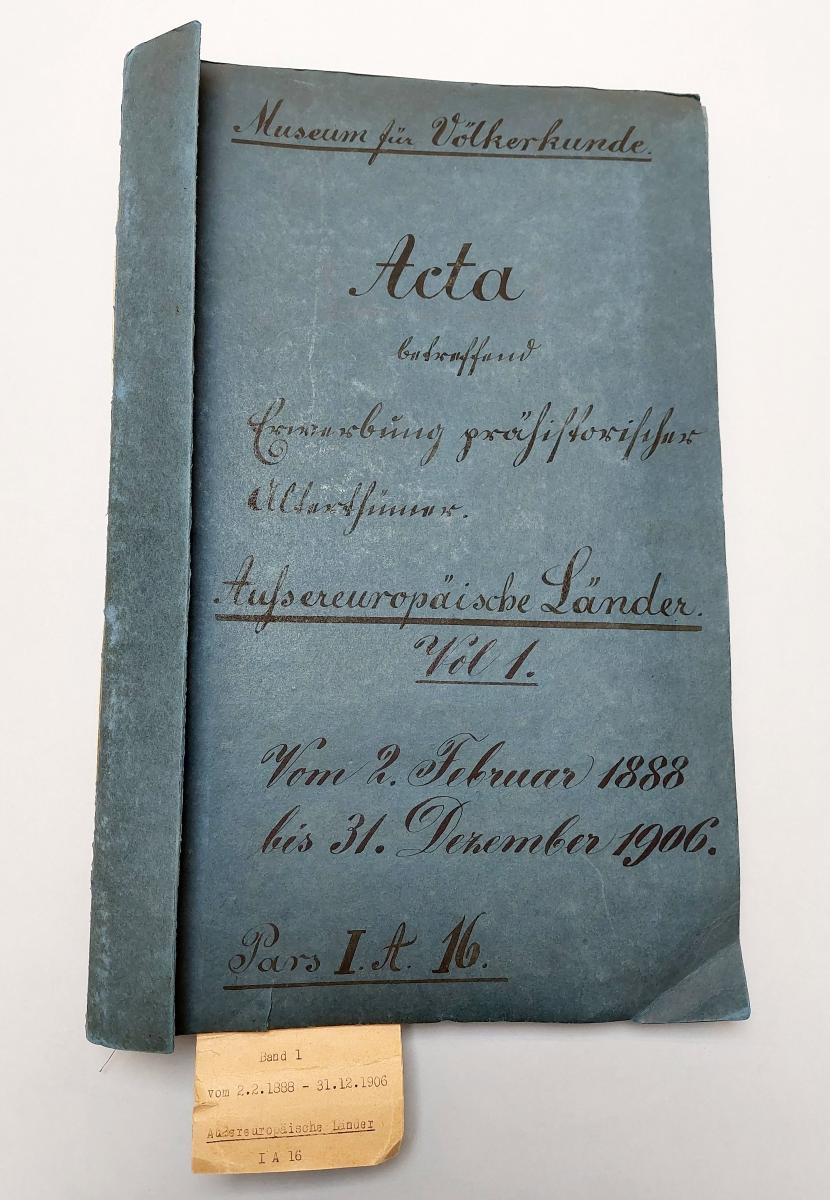 Museum für Völkerkunde.
Acta
betreffend
Erwerbung prähistorischer
Alterthümer.
Aussereuropäische Länder.
Vol 1.
Vom 2. Februar 1888
bis 31. Dezember 1906.
Pars I. A. 16.
Band 1
vom 2.2.1888 - 31.12.1906
Außereuropäische Länder
I A 16